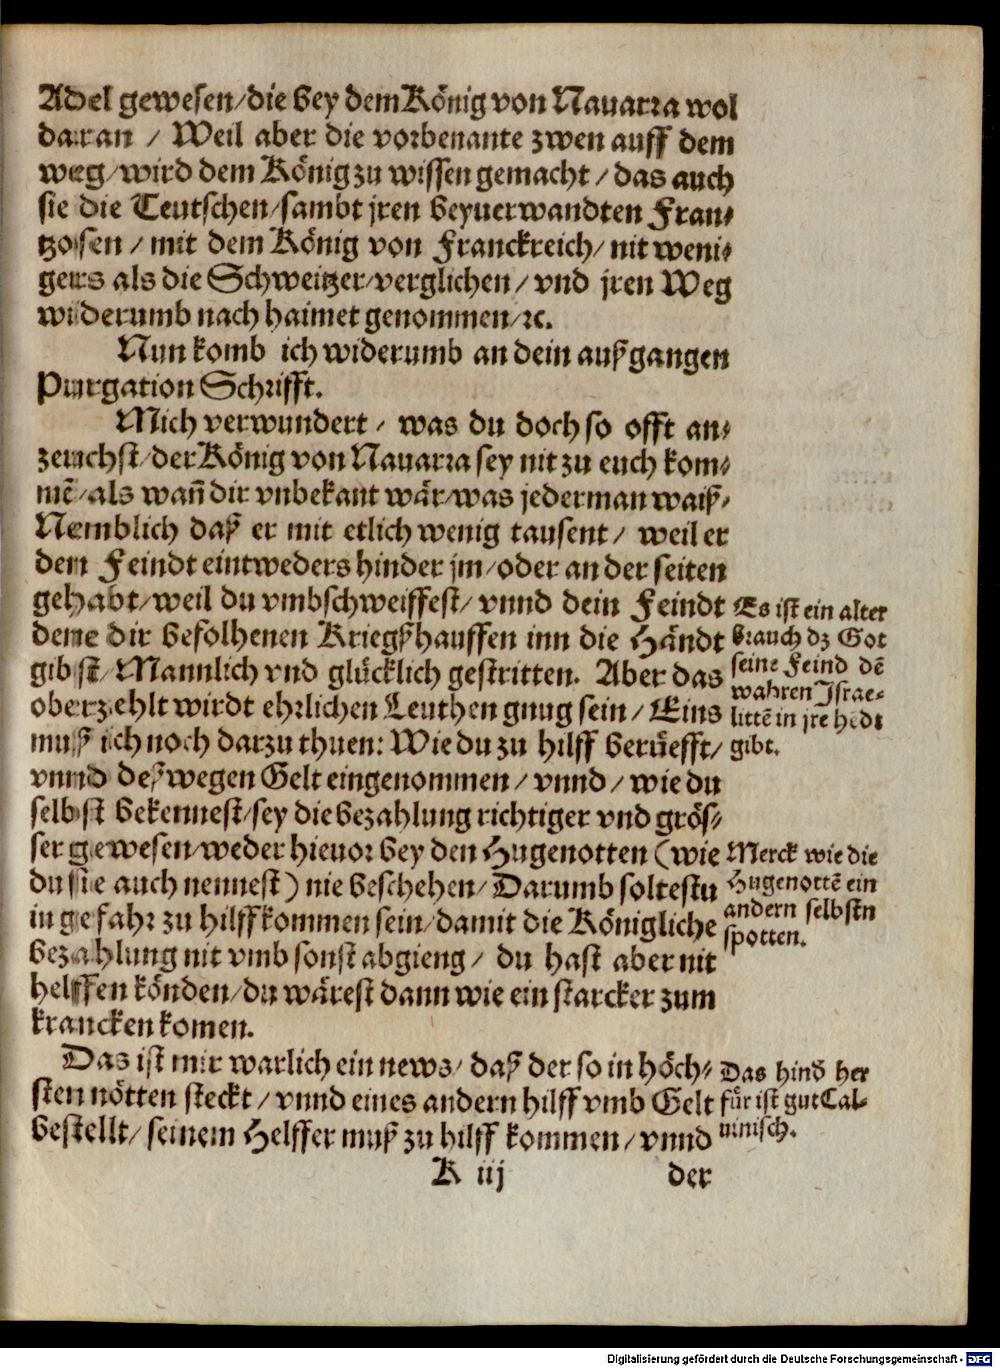 Adel gewesen/die bey dem König von Nauarra wol
darran / Weil aber die vorbenante zwen auff dem
weg/wird dem König zu wissen gemacht / das auch
sie die Teutschen/sambt jren beyuerwandten Fran⸗
tzosen / mit dem König von Franckreich/ nit weni⸗
gers als die Schweitzer/verglichen / vnd jren Weg
widerumb nach haimet genommen/ꝛc.
Nun komb ich widerumb an dein außgangen
Purgation Schrifft.
Mich verwundert / was du doch so offt an⸗
zeuchst/der König von Nauarra sey nit zu euch kom⸗
mẽ/als wañ dir vnbekant wär/was jederman waiß/
Nemblich daß er mit etlich wenig tausent/ weil er
den Feindt eintweders hinder jm/oder an der seiten
gehabt/weil du vmbschweiffest/ vnnd dein Feindt
deine dir befolhenen Kriegßhauffen inn die Händt
gibst/ Mannlich vnd glücklich gestritten. Aber das
oberzehlt wirdt ehrlichen Leuthen gnug sein/ Eins
muß ich noch darzu thuen: Wie du zu hilff berüefft/
vnnd deßwegen Gelt eingenommen / vnnd / wie du
selbst bekennest/sey die bezahlung richtiger vnd grös⸗
ser gewesen/weder hieuor bey den Hugenotten (wie
du sie auch nennest) nie beschehen/ Darumb soltestu
in gefahr zu hilff kommen sein/damit die Königliche
bezahlung nit vmb sonst abgieng / du hast aber nit
helffen könden/du wärest dann wie ein starcker zum
krancken komen.
Das ist mir warlich ein news/ daß der so in höch⸗
sten nötten steckt / vnnd eines andern hilff vmb Gelt
bestellt/ seinem Helffer muß zu hilff kommen/ vnnd
K iij
der
Es ist ein alter
brauch dz Got
seine Feind dẽ
wahren Israe⸗
littẽ in jre hẽdt
gibt.
Merck wie die
Hugenottẽ ein
andern selbstn
spotten.
Das hind her
für ist gut Cal⸗
uinisch.
Digitalisierung gefördert durch die Deutsche Forschungsgemeinschaft - DFG